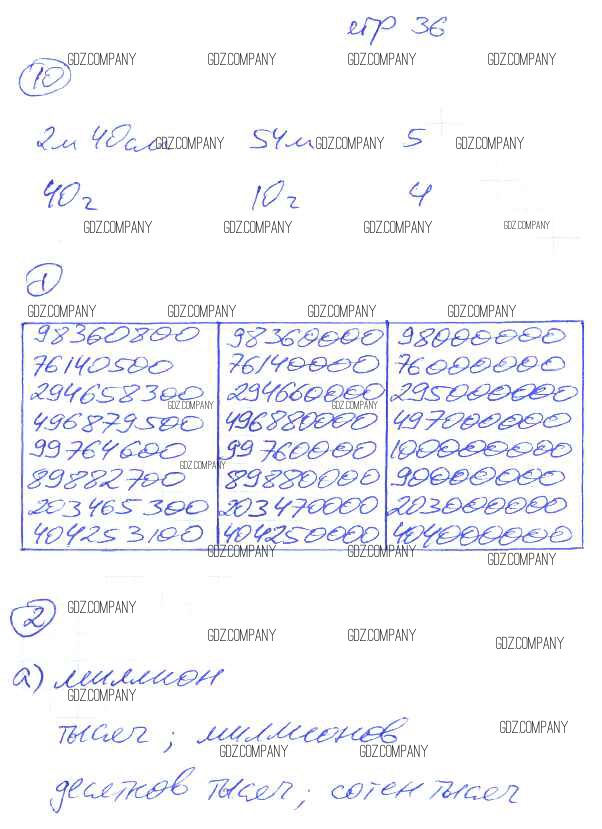 стр 36
GDZ.COMPANY GDZ.COMPANY GDZ.COMPANY GDZ.COMPANY
10
2м 40см 54м 5
GDZ.COMPANY GDZ.COMPANY GDZ.COMPANY
40г 10г 4
GDZ.COMPANY GDZ.COMPANY GDZ.COMPANY GDZ.COMPANY
1
GDZ.COMPANY GDZ.COMPANY GDZ.COMPANY GDZ.COMPANY
98360800 98360000 98000000
76140500 76140000 76000000
294658300 294660000 295000000
GDZ.COMPANY GDZ.COMPANY
496879500 496880000 497000000
99764600 99760000 100000000
GDZ.COMPANY
89882700 89880000 90000000
203465300 203470000 203000000
404253100 404250000 404000000
GDZ.COMPANY GDZ.COMPANY GDZ.COMPANY
2
GDZ.COMPANY GDZ.COMPANY GDZ.COMPANY GDZ.COMPANY
а) миллион
GDZ.COMPANY
тысяч; миллионов
GDZ.COMPANY GDZ.COMPANY GDZ.COMPANY
десятков тысяч; сотен тысяч